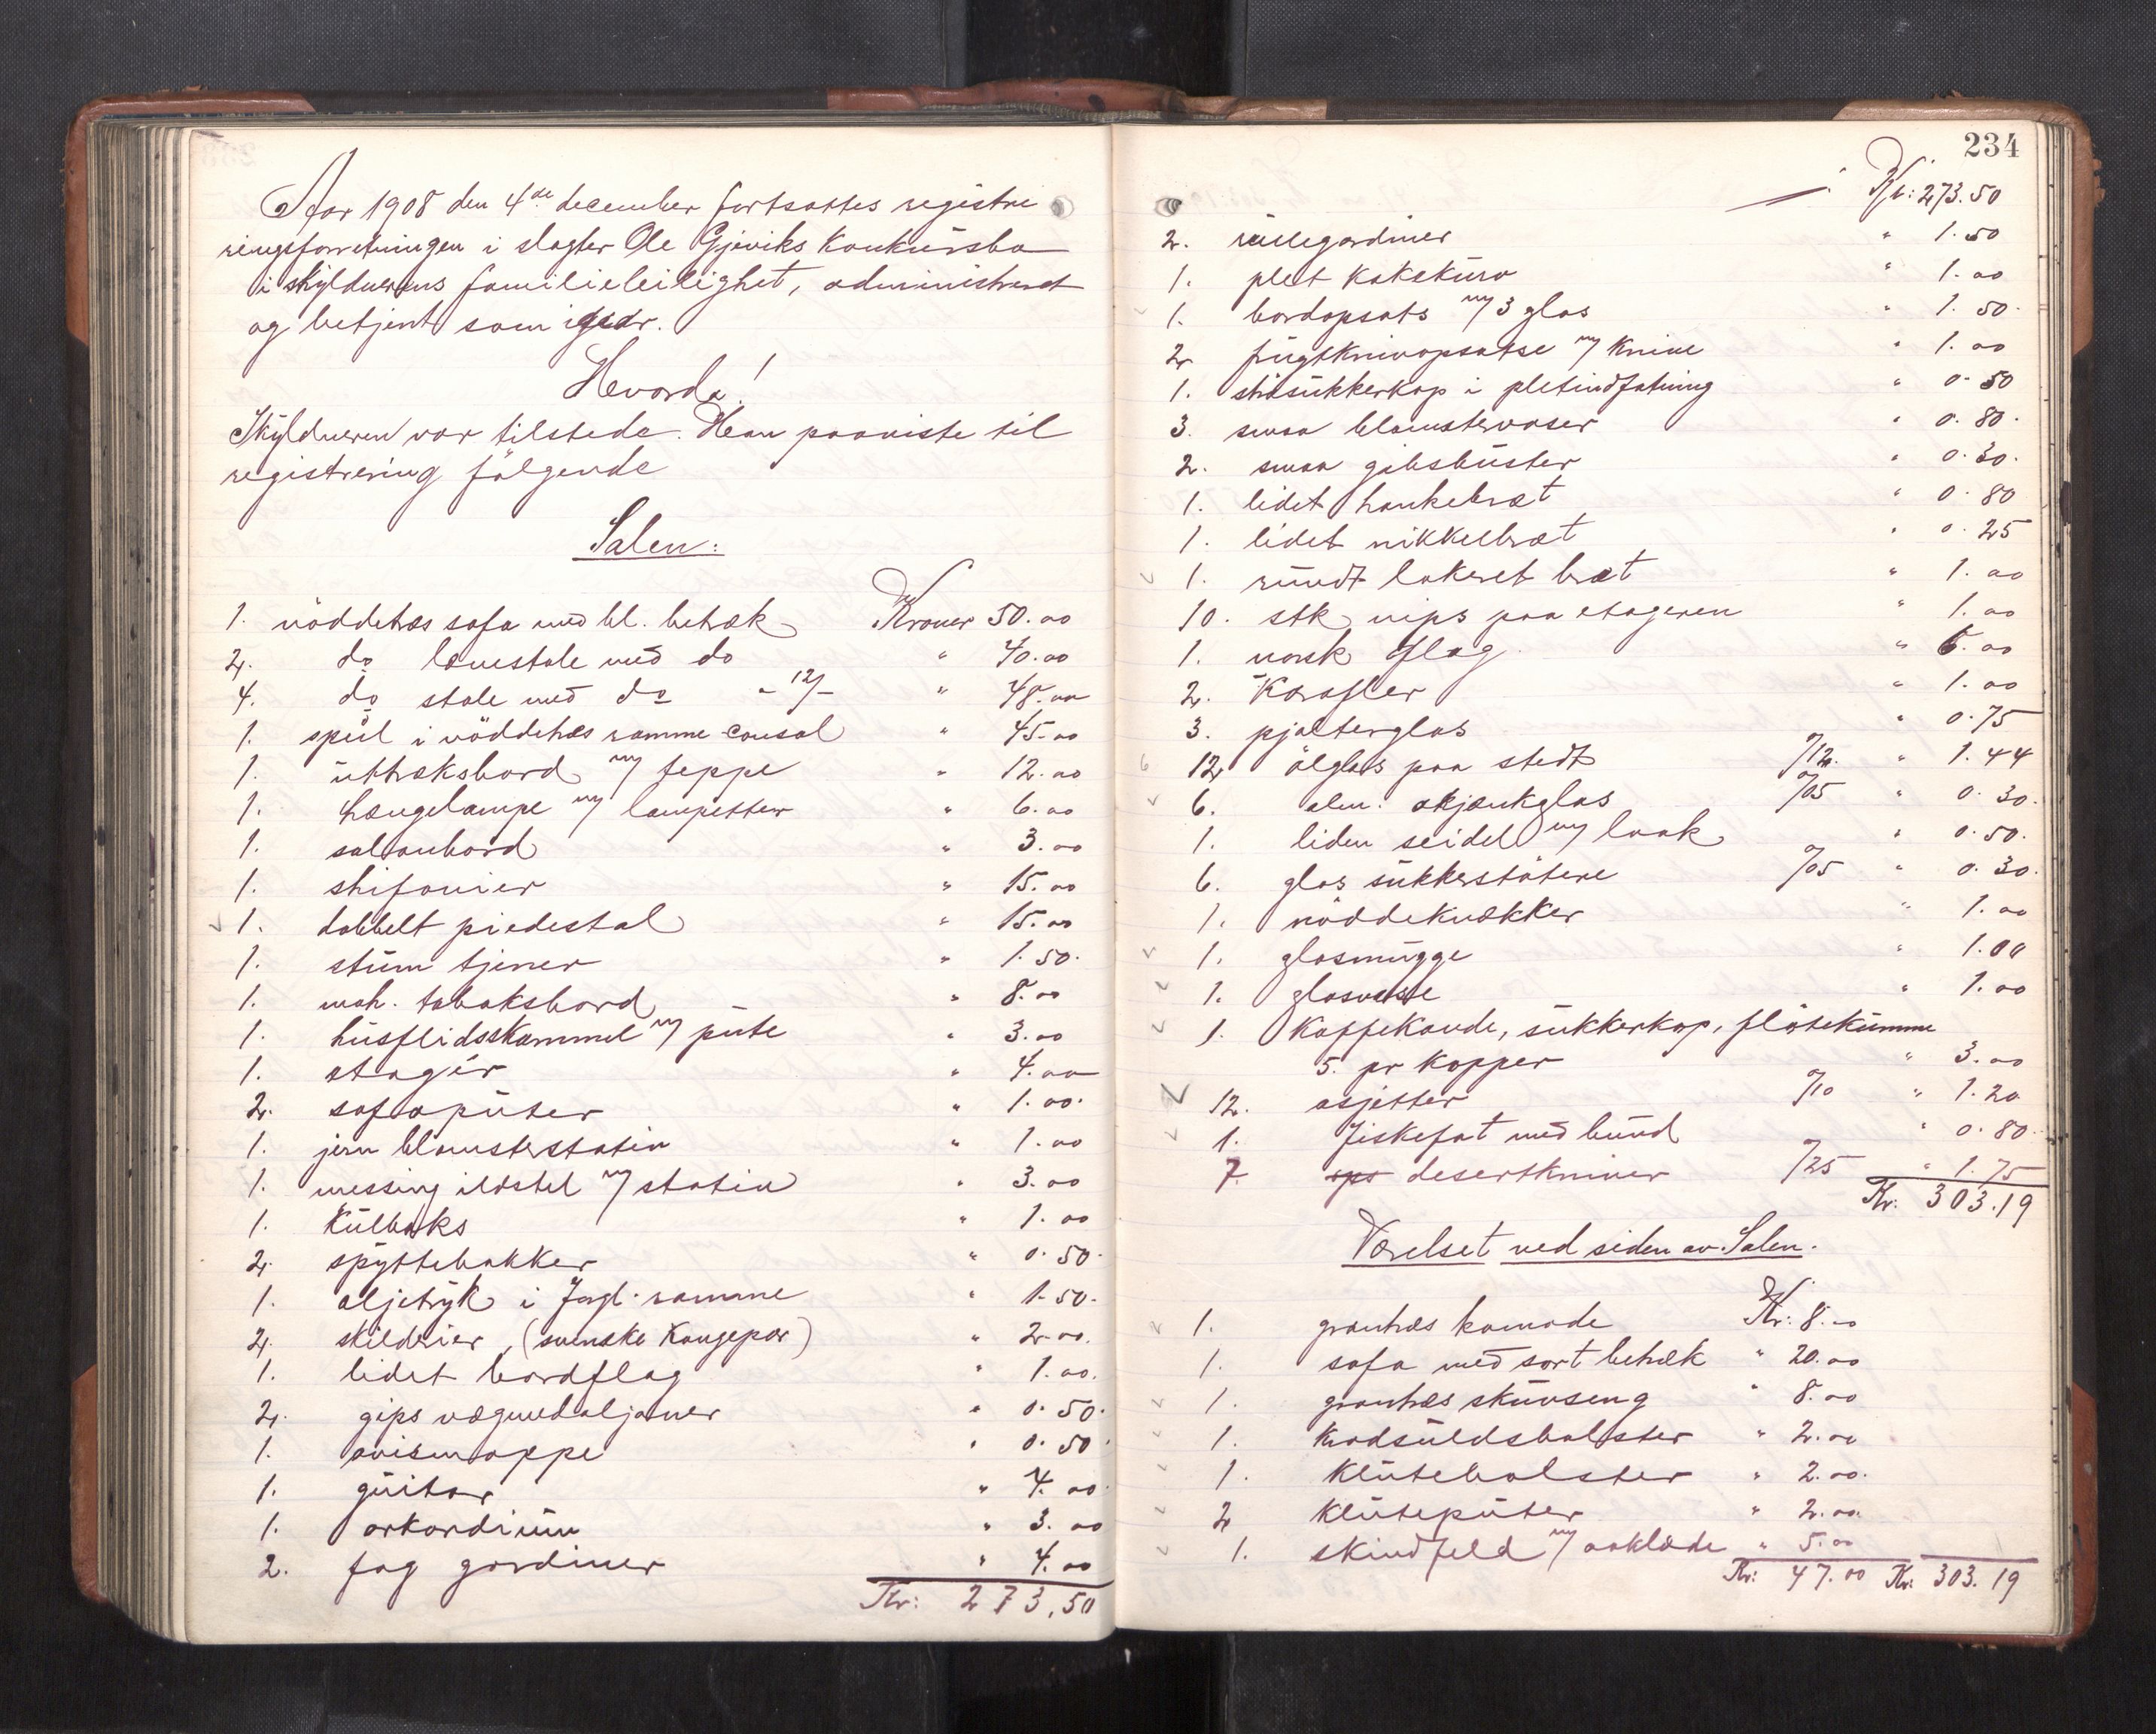 Aar 1908 den 4de december fortsattes registre
ringsforretningen i slagter Ole Gjeviks Konkursbo
i skyldnerens familieleilighet, administrert
og betjent som igaar.
Hvorda!
Skyldneren var tilstede. Han paaviste til
registrering følgende
Salen:
1. nøddetræs sofa med bl. betræk Kroner 50.00
2. do lænestole med do " 40.00
4. do stole med do - 12/- " 48.00
1. speil i nøddetræs ramme - consol " 45.00
1. uttræksbord m/ teppe " 12.00
1. hængelampe m/ lampetter " 6.00
1. salonbord " 3.00
1. shifonier " 15.00
1. dobbelt piedestal " 15.00
1. stum tjener " 1.50.
1. mah. tobaksbord " 8.00
1. husflidsskammel m/ pute " 3.00
1. etagér " 4.00
2. sofaputer " 1.00.
1. jern blomsterstativ " 1.00
1. messing ildstel m/ stativ " 3.00
1. Kulboks " 1.00
2. spyttebakker " 0.50.
1. oljetryk i forgl. ramme " 1.50.
2. skilderier, (svenske Kongepar) " 2.00.
1. lidet bordflag " 1.00.
2. gips vægmedaljoner " 0.50.
1. avismappe " 0.50.
1. guitar " 4.00.
1. arkordium " 3.00
2. fag gardiner " 4.00
Kr: 273,50
234
Kr: 273.50
2. rullegardiner " 1.50
1. plet kakekurv " 1.00
1. bordopsats m/ 3 glas " 1.50.
2. frugtknivopsatse m/ Knive " 1.00
1. strøsukkerkop i pletindfatning " 0.50
3. smaa blomstervaser " 0.80.
2. smaa gibsbuster " 0.30.
1. lidet hankebræt " 0.80
1. lidet nikkelbræt " 0.25
1. rundt lakeret bræt " 1.00
10. stk nips paa etageren " 1.00
1. norsk flag " 6.00
2. Karafler " 1.00
3. pjalterglas " 0.75
12. ølglas paa stedt %12. " 1.44
6. alm. skjænkglas %05 " 0.30.
1. liden seidel m/ laak " 0.50.
6. glas sukkerstøtere %05 " 0.30.
1. nøddeknækker " 1.00
1. glasmugge " 1.00
1. glasvase " 1.00
1. Kaffekande, sukkerkop, fløtekumme
5. pr kopper " 3.00
12. asjetter %10 " 1.20
1. fiskefat med bund " 0.80.
7. sps desertkniver /25 " 1.75
Kr. 303.19
Værelset ved siden av Salen.
1. grantræs komode Kr: 8.00
1. sofa med sort betræk " 20.00
1. grantræs skuvseng " 8.00
1. Krøduldsbolster " 2.00
1. Klutebolster " 2.00.
2 Kluteputer " 2.00.
1. skindfeld m/ aaklæde " 5.00
Kr: 47.00 Kr: 303.19